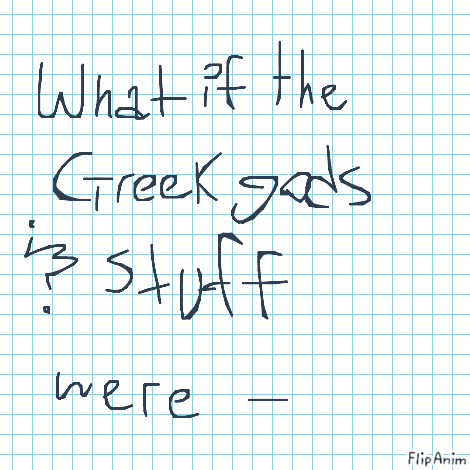 What if the
Greek gods
stuff
were —
FlipAnim